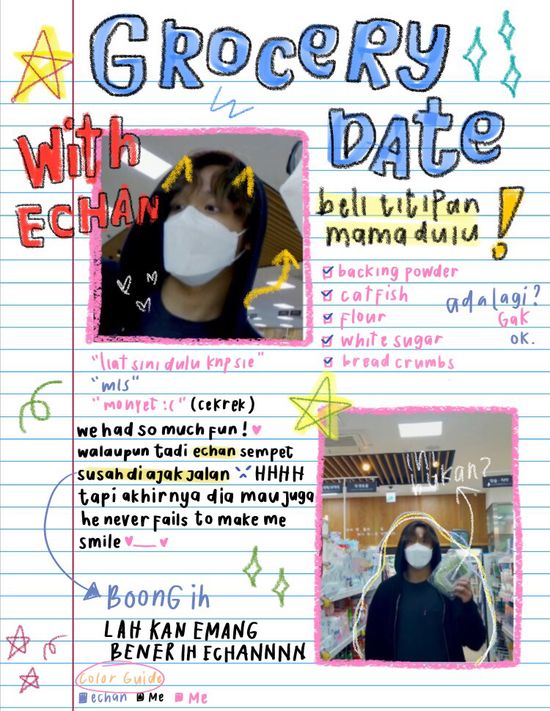 GROCERY
DATE
With
ECHAN
beli titipan
mama dulu !
backing powder
catfish
flour
white sugar
bread crumbs
ada lagi?
Gak
ok.
"liat sini dulu knp sie"
"mls"
"monyet :(" (cekrek)
we had so much fun!
walaupun tadi echan sempet
susah di ajak jalan HHHH
tapi akhirnya dia mau juga
he never fails to make me
smile
ikan?
BoonG ih
LAH KAN EMANG
BENER IH ECHANNNN
Color Guide
echan Me Me